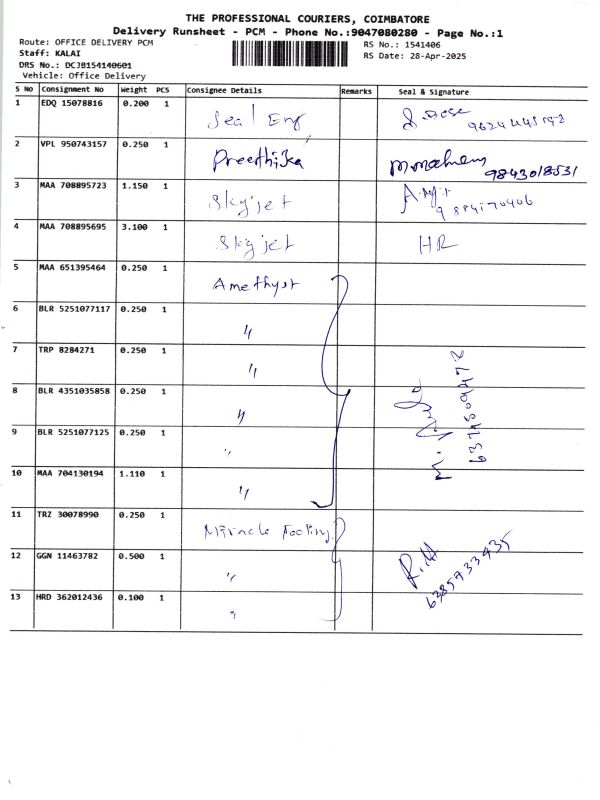 THE PROFESSIONAL COURIERS, COIMBATORE
Delivery Runsheet - PCM - Phone No.:9047080280 - Page No.:1
Route: OFFICE DELIVERY PCM
RS No.: 1541406
Staff: KALAI
RS Date: 28-Apr-2025
DRS No.: DCJB154140601
Vehicle: Office Delivery
S No Consignment No Weight PCS Consignee Details Remarks Seal & Signature
1 EDQ 15078816 0.200 1 Seal Eng
2 VPL 950743157 0.250 1 Preethika 9843018531
3 MAA 708895723 1.150 1 Skyjet 9884170406
4 MAA 708895695 3.100 1 Skyjet HR
5 MAA 651395464 0.250 1 Amethyst
6 BLR 5251077117 0.250 1 "
7 TRP 8284271 0.250 1 "
8 BLR 4351035858 0.250 1 "
9 BLR 5251077125 0.250 1 "
10 MAA 704130194 1.110 1 "
11 TRZ 30078990 0.250 1 Miracle Footing
12 GGN 11463782 0.500 1 "
6385933435
13 HRD 362012436 0.100 1 "